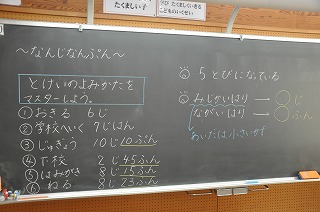 たくましい子
学び たくましくいきる
こどものいくせい
～なんじなんぷん～
とけいのよみかたを
マスターしよう。
①おきる 6じ
②学校へいく 7じはん
③じゅぎょう 10じ10ぷん
④下校 2じ45ふん
⑤はみがき 8じ15ふん
⑥ねる 8じ23ふん
5とびになっている
みじかいはり→○じ
ながいはり→○ふん
あいだは小さいかず